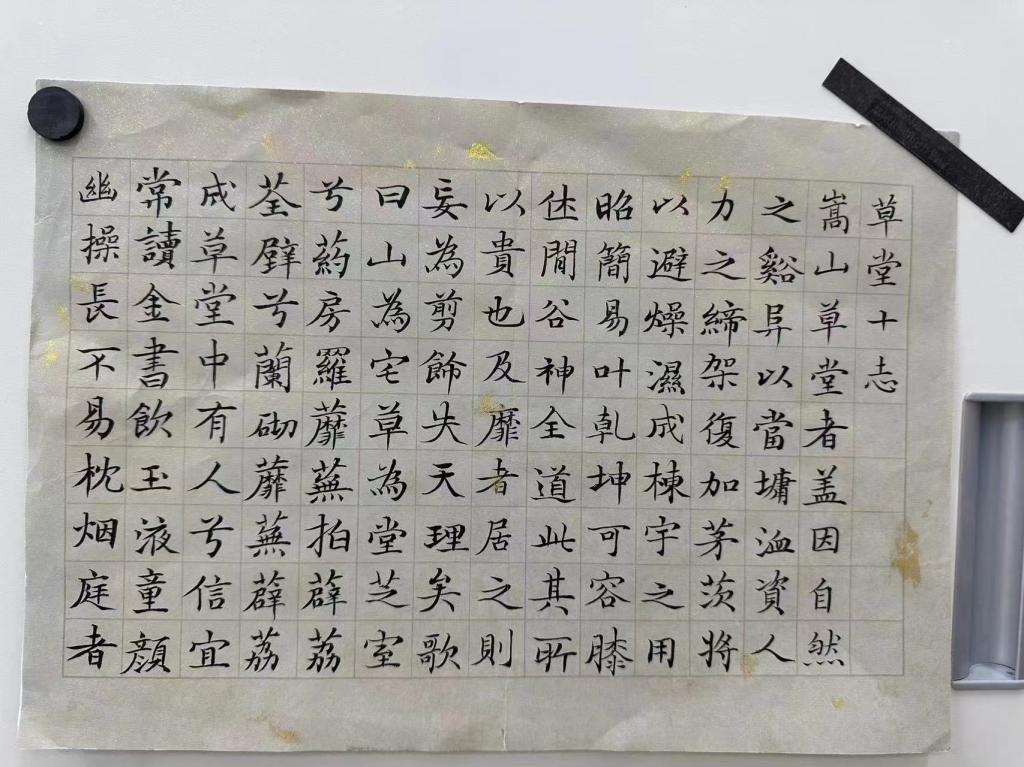 草堂十志
嵩山草堂者盖因自然
之谿异以當墉洫資人
力之締架復加茅茨将
以避燥濕成棟宇之用
昭簡易叶乹坤可容膝
休閒谷神全道此其所
以貴也及靡者居之則
妄為剪飾失天理矣歌
曰山為宅草為堂芝室
兮葯房羅蘼蕪拍薜荔
荃壁兮蘭砌蘼蕪薜荔
成草堂中有人兮信宜
常讀金書飲玉液童顔
幽操長不易枕烟庭者